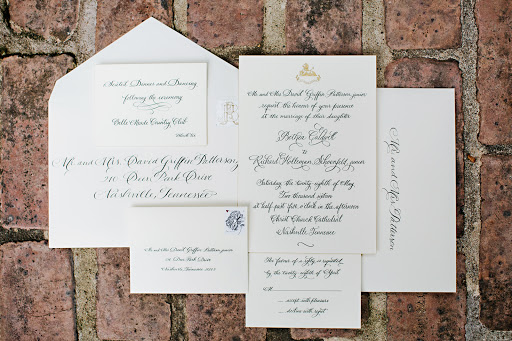 Seated Dinner and Dancing
following the ceremony
Belle Meade Country Club
Mr. and Mrs. David Griffin Patterson, junior
request the honour of your presence
at the marriage of their daughter
Richard Holtzman
junior
Saturday the twenty-eighth of May
Two thousand sixteen
at half past five o'clock in the afternoon
Christ Church Cathedral
Nashville, Tennessee
Mr. and Mrs. Patterson
Mr. and Mrs. David Griffin Patterson,
210 Deer Park Drive
Nashville, Tennessee
Mr. and Mrs. David Griffin Patterson, junior
210 Deer Park Drive
Nashville, Tennessee
The favour of a reply is requested
by the twenty-eighth of April
M
accept with pleasure
decline with regret